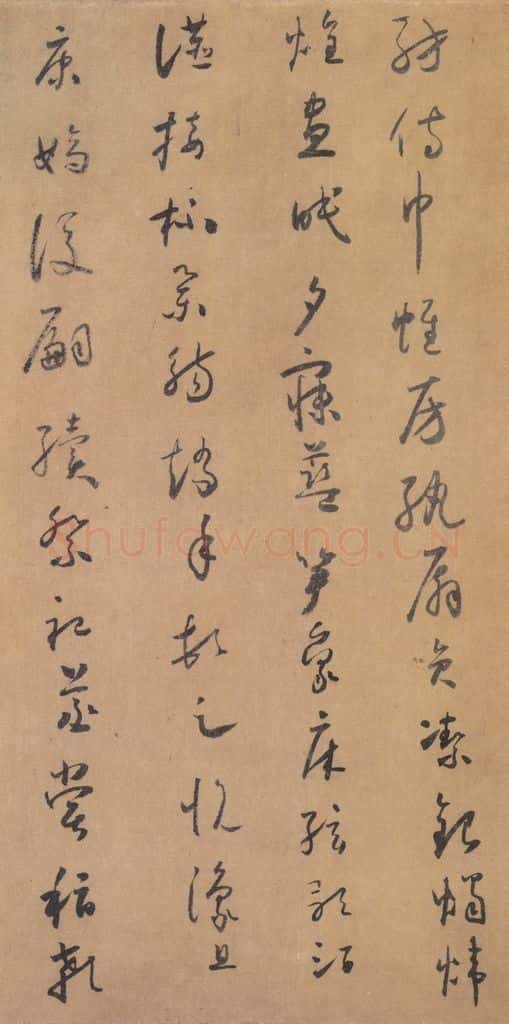 紡侍巾帷房紈扇員潔銀燭煒
煌晝眠夕寐藍笋象床弦歌酒
讌接杯舉觴矯手頓足悅豫且
康嫡後嗣續祭祀蒸嘗稽顙
shufawang.CN